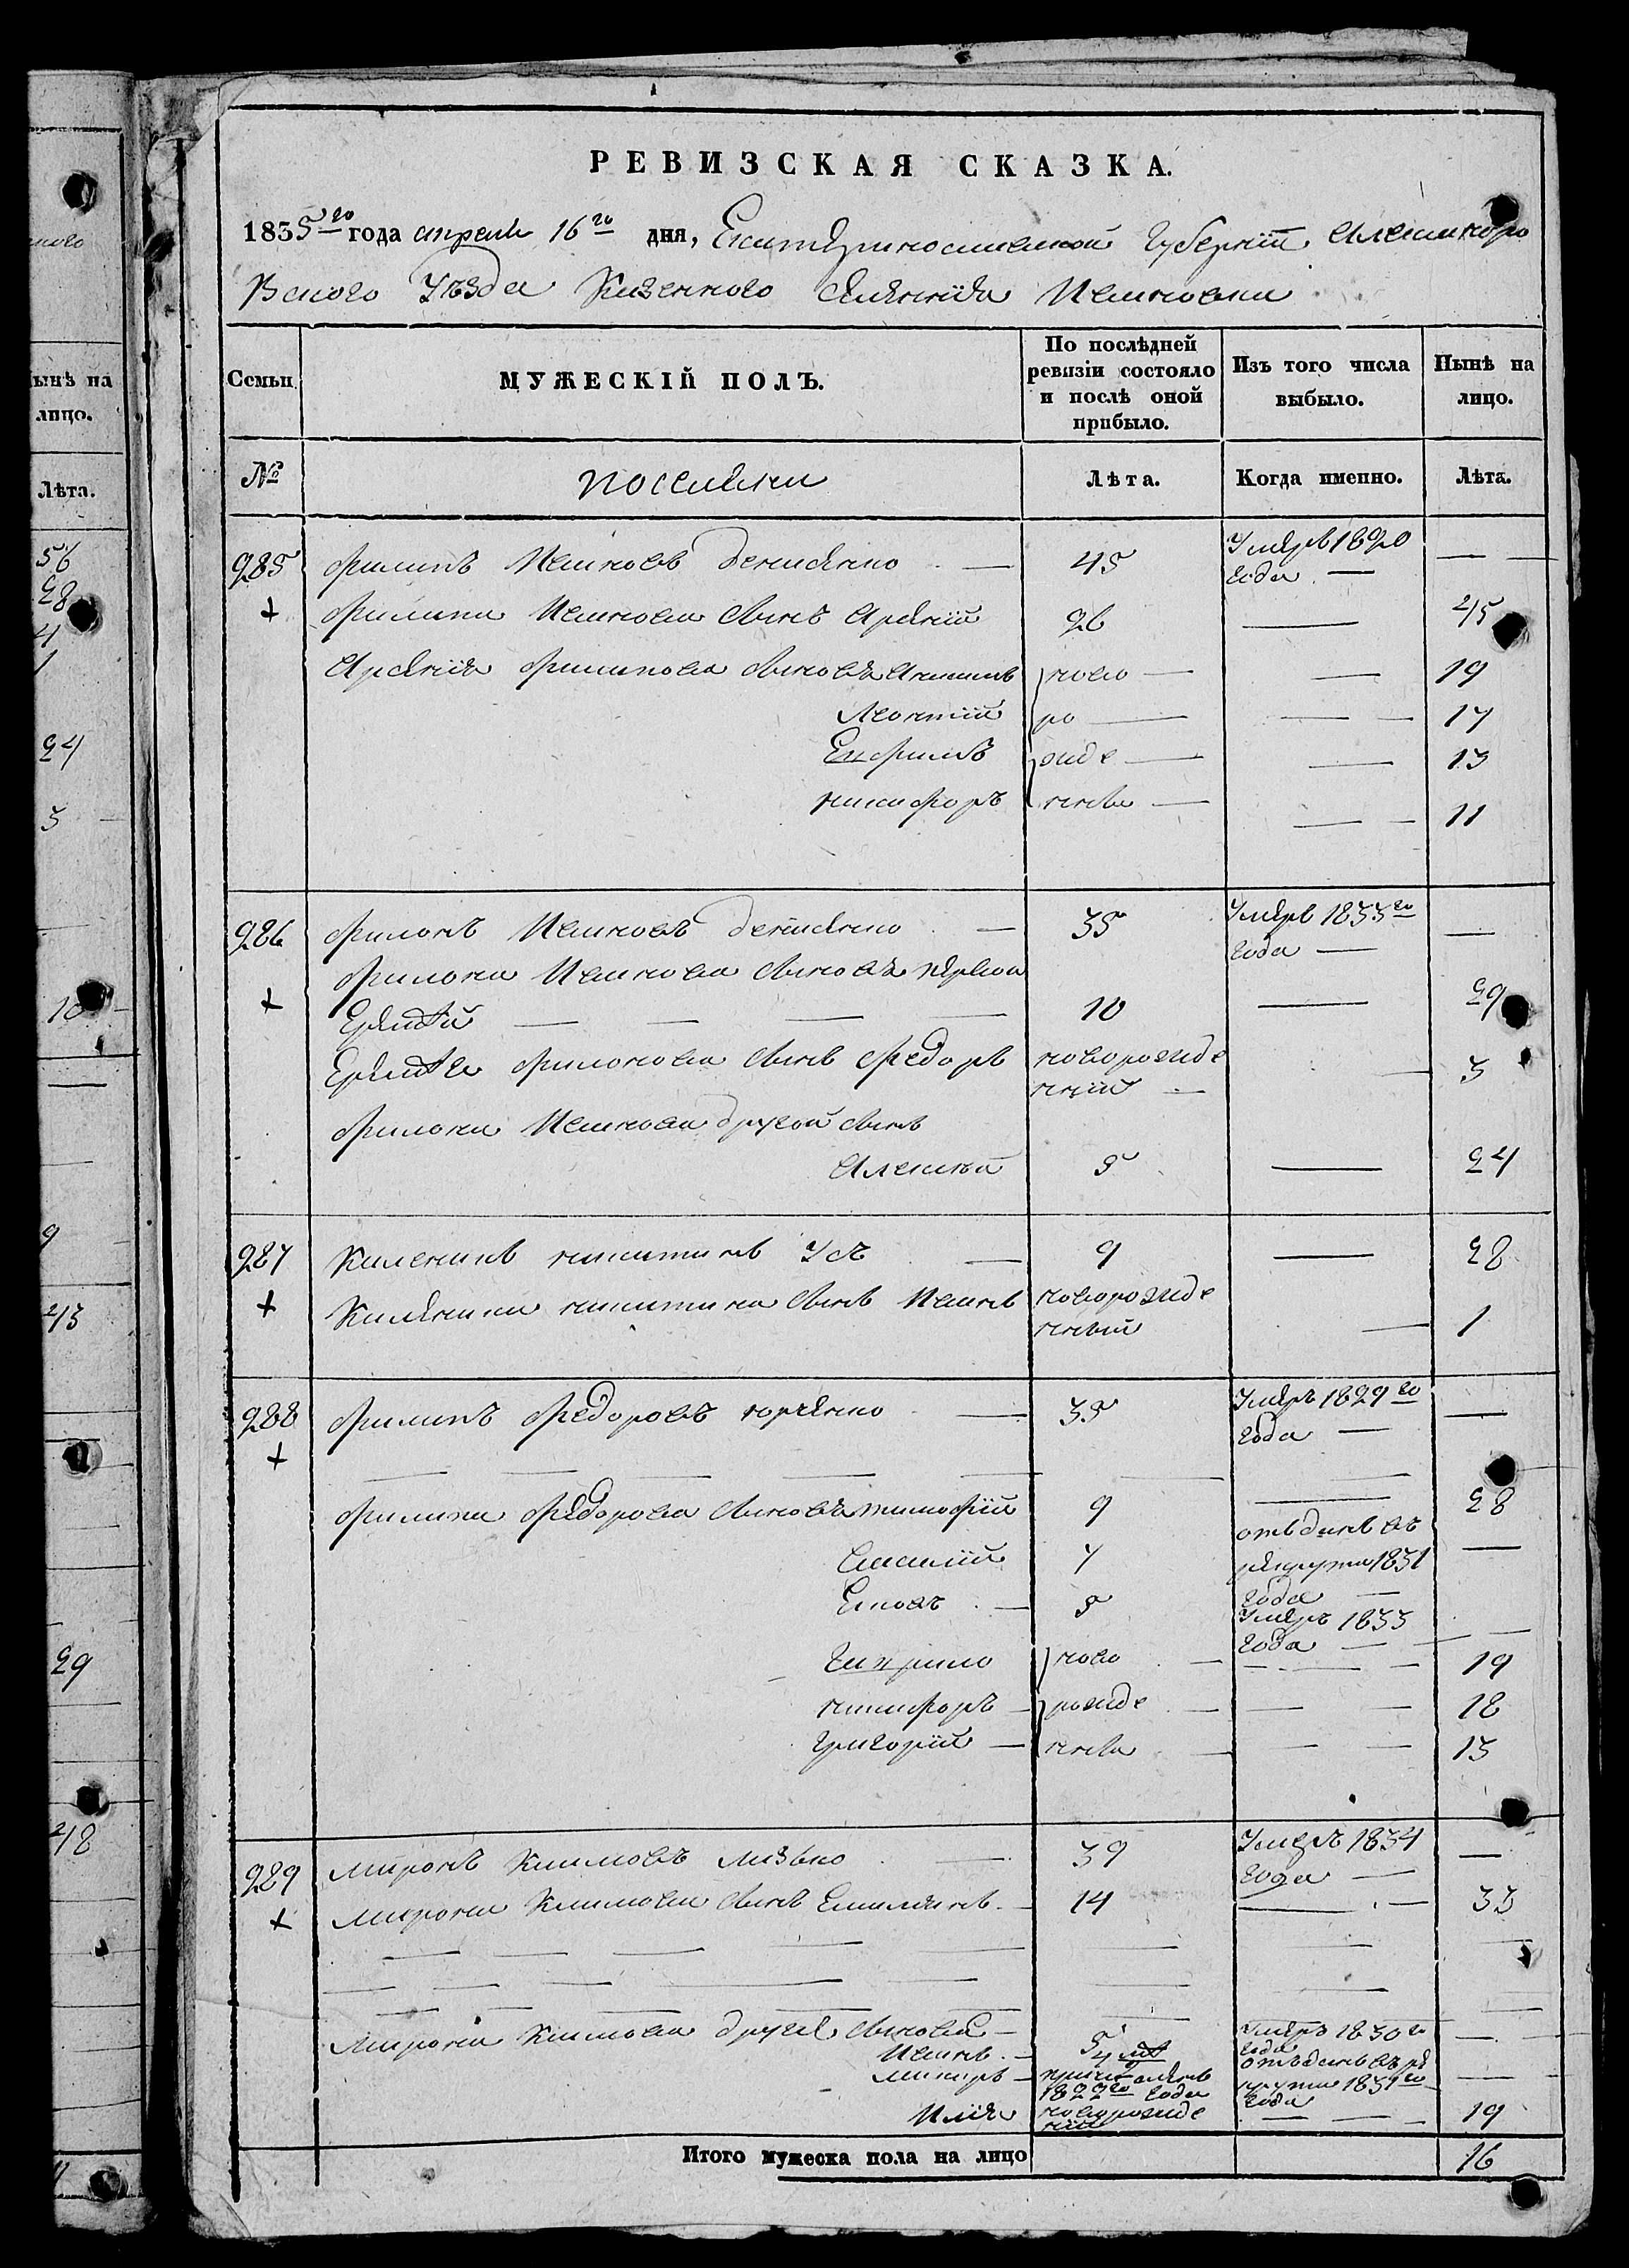 ного
Нынѣ на
лицо.
Лѣта.
56
28
4
1
24
3
10
9
43
29
48
РЕВИЗСКАЯ СКАЗКА.
1835го года апреля 16го дня, Екатеринославской Губернiи Александро
вского Уѣзда Казенного селенiя Ивановки
Семьи
МУЖЕСКІЙ ПОЛЪ.
По послѣдней ревизіи состояло и послѣ оной прибыло.
Изъ того числа выбыло.
Нынѣ на лицо.
№
поселяни
Лѣта.
Когда именно.
Лѣта.
285 Филипъ Ивановъ Денисенко — 45 Умеръ 1820 года — —
+ Филипа Иванова сынъ Арсенiй 26 — 45
Арсенiя Филипова сыновья новo — — 19
Леонтiй ро — — 17
Ефимъ жде — — 13
никифоръ нные — — 11
286 Филонъ Ивановъ Денисенко — 35 Умеръ 1833го года — —
Филона Иванова сыновья первой
+ Еремѣй — — — — 10 — 29
Еремѣя Филонова сынъ Федоръ новорожде нный — — 3
Филона Иванова другой сынъ
Алексѣй 5 — 24
287 Каленикъ никитинъ Усъ — 9 — 28
+ Каленика никитина сынъ Иванъ новорожде нный — 1
288 Филипъ Федоровъ — 35 Умеръ 1829го года — —
+
Филипа Федорова сыновья тимофiй 9 — 28
Василiй 7 отъданъ въ рекруты 1831 года — —
5 Умеръ 1833 года — —
Гаврило ново — — 19
никифоръ — рожде — — 18
Григорiй — нные — — 13
289 миронъ Климовъ — 39 Умеръ 1834 года — —
+ мирона Климова сынъ Емилианъ — 14 — 33
мирона Климова другiе сыновья —
Иванъ — 5 Умеръ 1830го года —
макаръ — 4 лѣт 1822го года отъданъ въ ре круты 1831го года —
Илiя новорожде нный — — 19
Итого мужеска пола на лицо 16